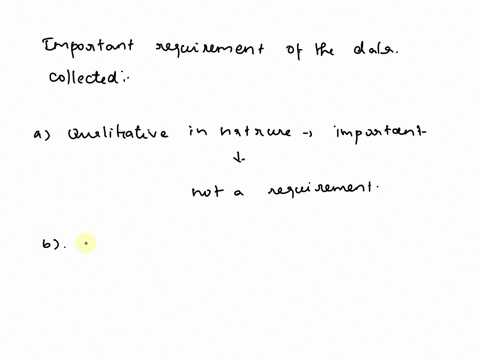 Important requirement of the data
collected:-
a) Qualitative in nature → important
↓
not a requirement.
b).